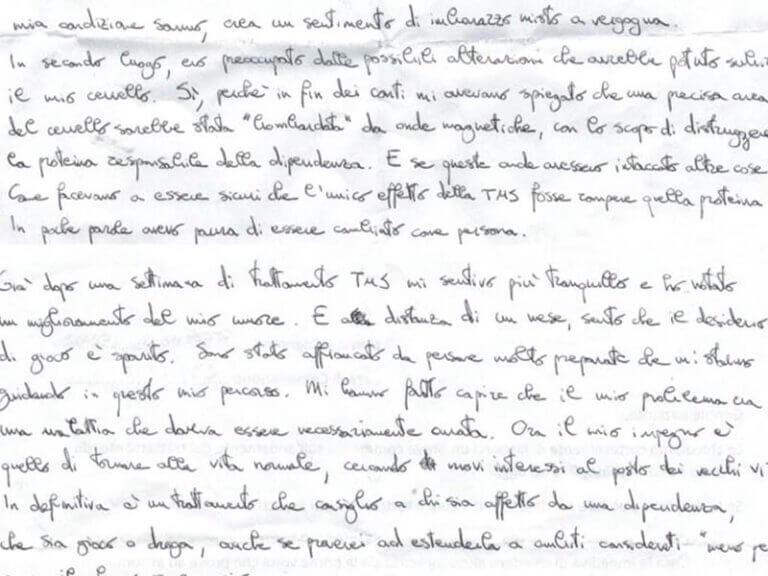 mia condizione sanno, crea un sentimento di imbarazzo misto a vergogna.
In secondo luogo, ero preoccupato dalle possibili alterazioni che avrebbe potuto subi
il mio cervello. Sì, perchè in fin dei conti mi avevano spiegato che una precisa area
del cervello sarebbe stata "bombardata" da onde magnetiche, con lo scopo di distruggere
la proteina responsabile della dipendenza. E se queste onde avessero intaccato altre cose
Come facevano a essere sicuri che l'unico effetto della TMS fosse rompere quella proteina
In poche parole avevo paura di essere cambiato come persona.
Già dopo una settimana di trattamento TMS mi sentivo più tranquillo e ho notato
un miglioramento del mio umore. E a distanza di un mese, sento che il desiderio
di gioco è sparito. Sono stato affiancato da persone molto preparate che mi stanno
guidando in questo mio percorso. Mi hanno fatto capire che il mio problema era
una malattia che doveva essere necessariamente curata. Ora il mio impegno è
quello di tornare alla vita normale, cercando nuovi interessi al posto dei vecchi vi
In definitiva è un trattamento che consiglio a chi sia affetto da una dipendenza,
che sia gioco o droga, anche se proverei ad estenderla a ambiti considerati "meno pe